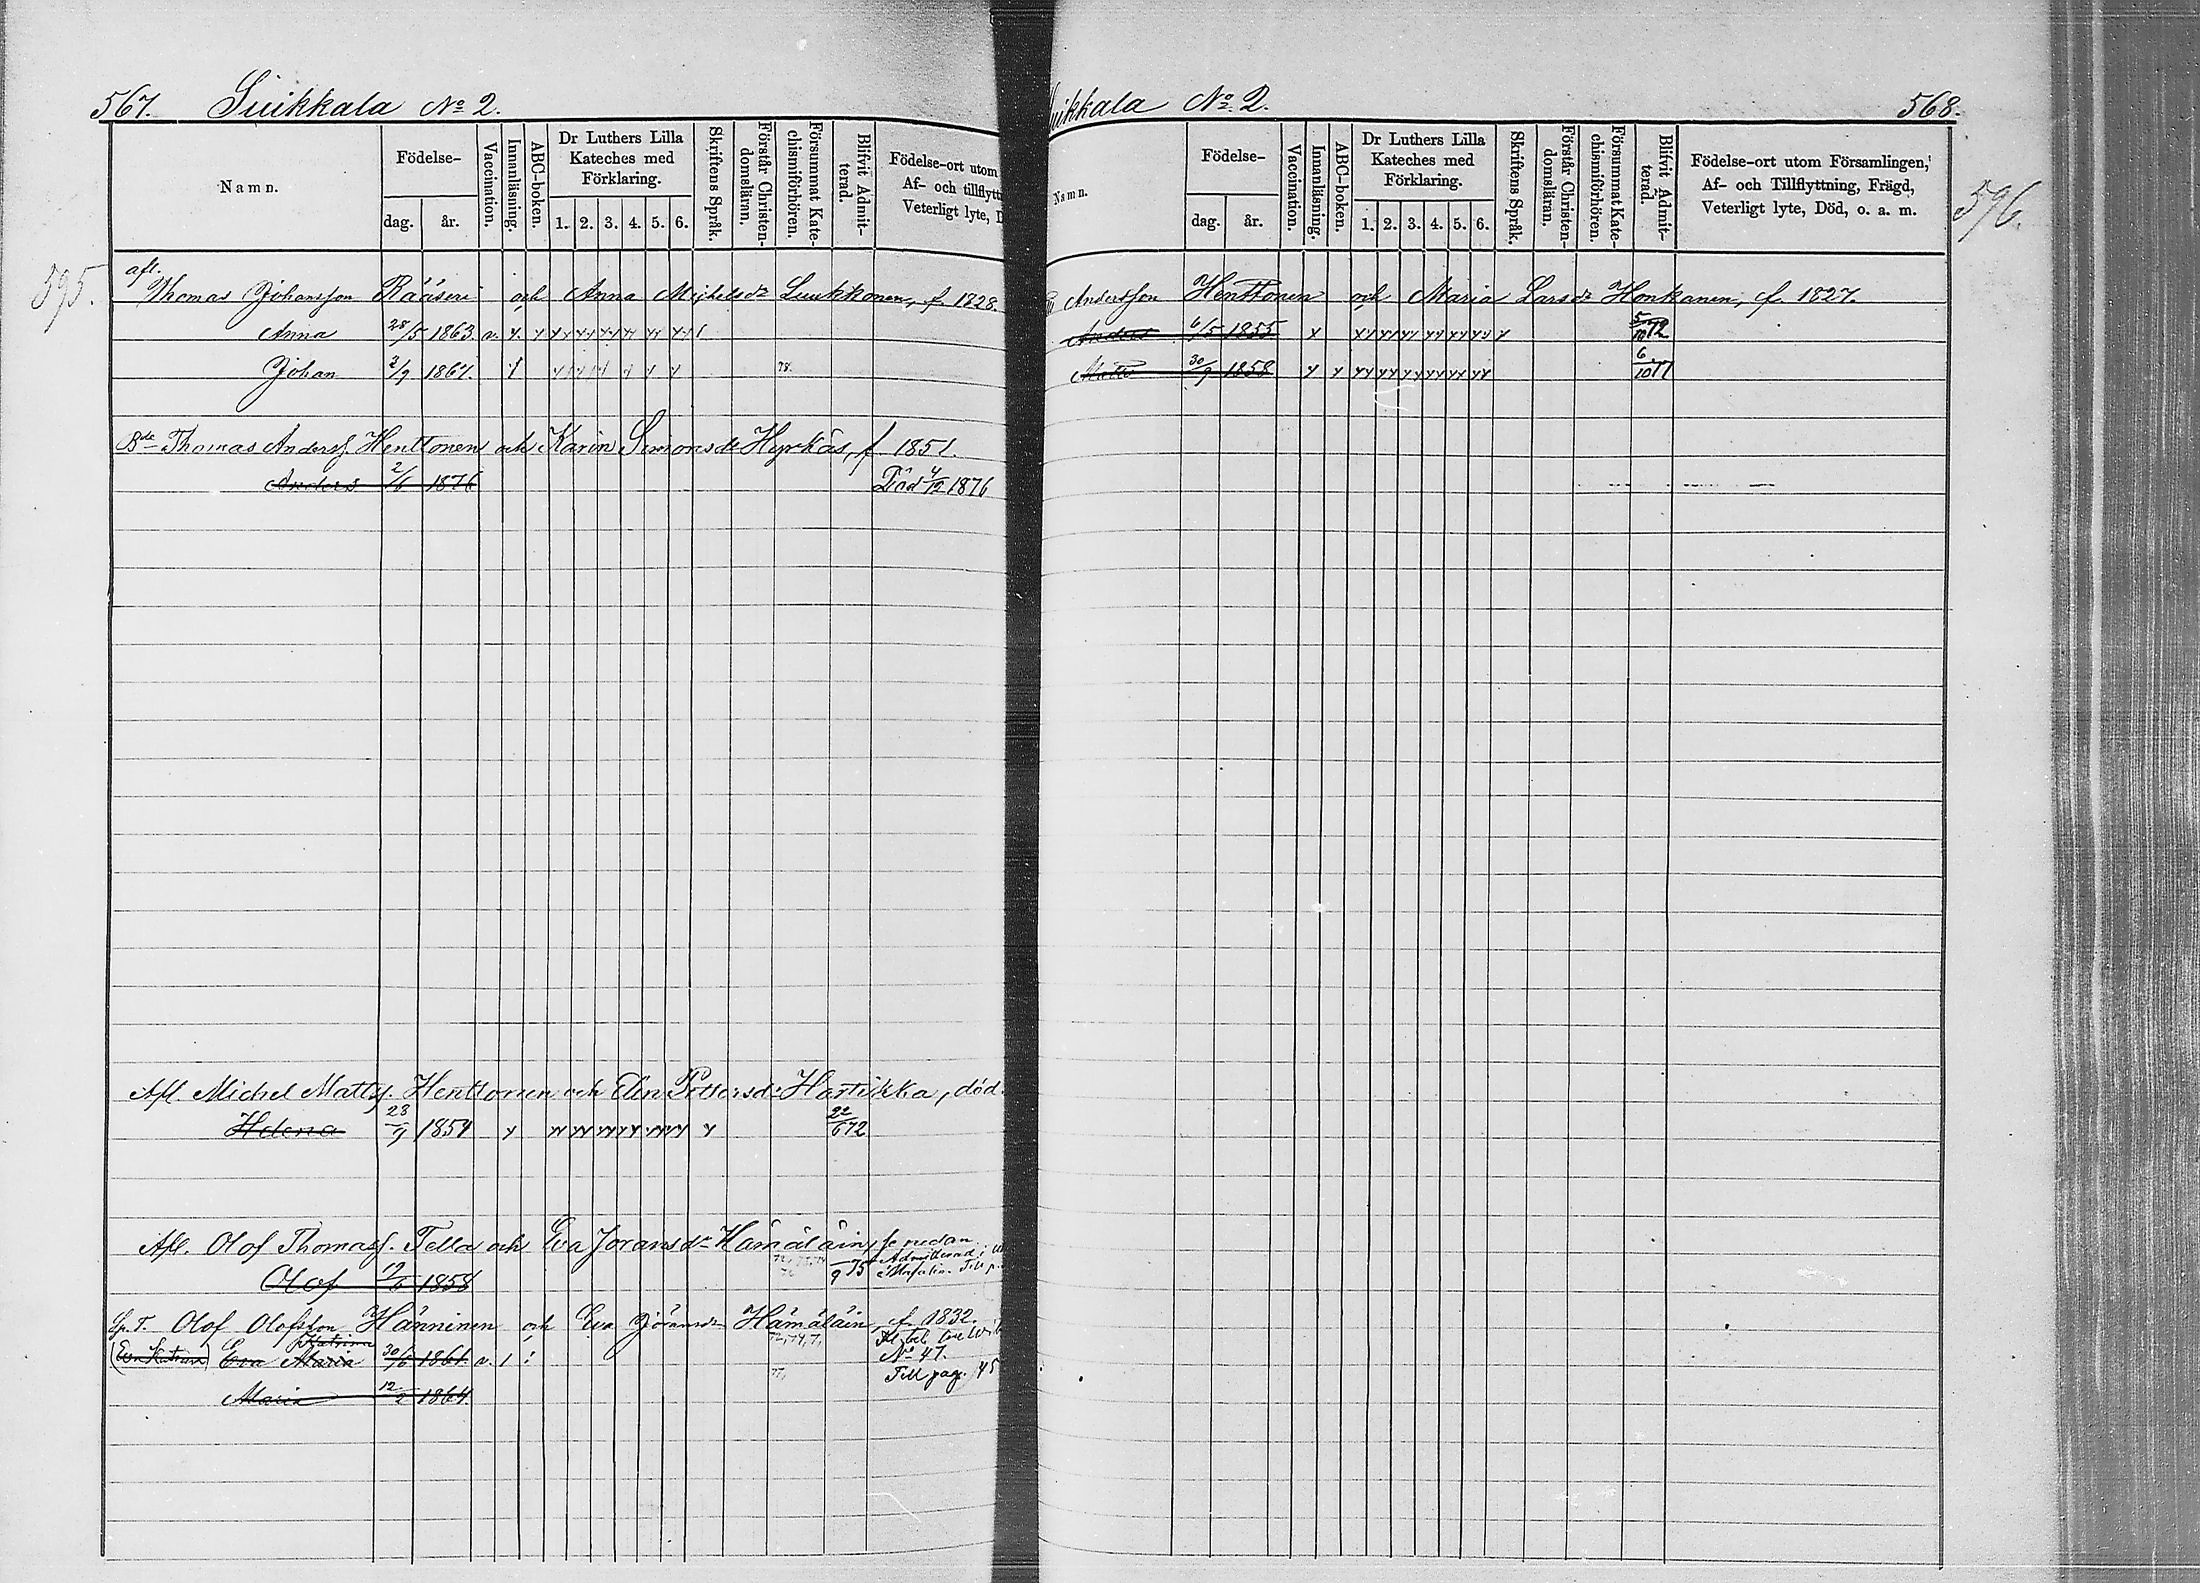 567. Suikkala No 2.
Namn.
Födelse-
dag.
år.
Vaccination.
Innanläsning.
ABC-boken.
Dr Luthers Lilla
Kateches med
Förklaring.
1. 2. 3. 4. 5. 6.
Skriftens Språk.
Förstår Christen-
domsläran.
Försummat Kate-
chismiförhören.
Blifvit Admit-
terad.
Födelse-ort utom
Af- och tillflytt
Veterligt lyte, D
595.
afl.
Thomas Johansson Rääseni och Anna Michelsdr Luukkonen, f 1828.
Anna 28/5 1863. v. y. y
Johan 2/9 1867. 78.
Bde Thomas Anderss. Henttonen och Karin Simonsdr Hyrkäs, f 1851.
Anders 2/6 1876 Död 4/12 1876
Afl Michel Mattss. Henttonen och Elin Pettersdr Hartikka, död.
Helena 23/9 1854 y 22/6 72
Afl. Olof Thomass. Tella och Eva Joransdr Hämäläin, se nedan
Olof 19/6 1858 9 75 Admitterad i
Till p.
Sp. T. Olof Olofsson Hänninen och Eva Jöransdr Hämäläin, f. 1832.
Katrina
(Eva Katrina) Eva Maria 30/6 1861. v. No 47.
Till pag. 45
Maria 12/2 1864.
uikkala No 2. 568.
Namn.
Födelse-
dag.
år.
Vaccination.
Innanläsning.
ABC-boken.
Dr Luthers Lilla
Kateches med
Förklaring.
1. 2. 3. 4. 5. 6.
Skriftens Språk.
Förstår Christen-
domsläran.
Försummat Kate-
chismiförhören.
Blifvit Admit-
terad.
Födelse-ort utom Församlingen,
Af- och Tillflyttning, Frägd,
Veterligt lyte, Död, o. a. m.
596.
Andersson Henttonen och Maria Larsdr Honkanen, f. 1827.
Anders 6/5 1855 y 5/10 72
Matts 30/9 1858 y y 6/10 77